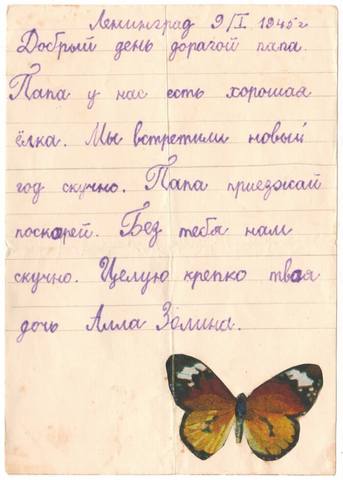 Ленинград 9/I 1945 г
Добрый день дорагой папа.
Папа у нас есть хорошая
ёлка. Мы встретили новый
год скучно. Папа приезжай
поскорей. Без тебя нам
скучно. Целую крепко твоя
дочь Алла Золина.